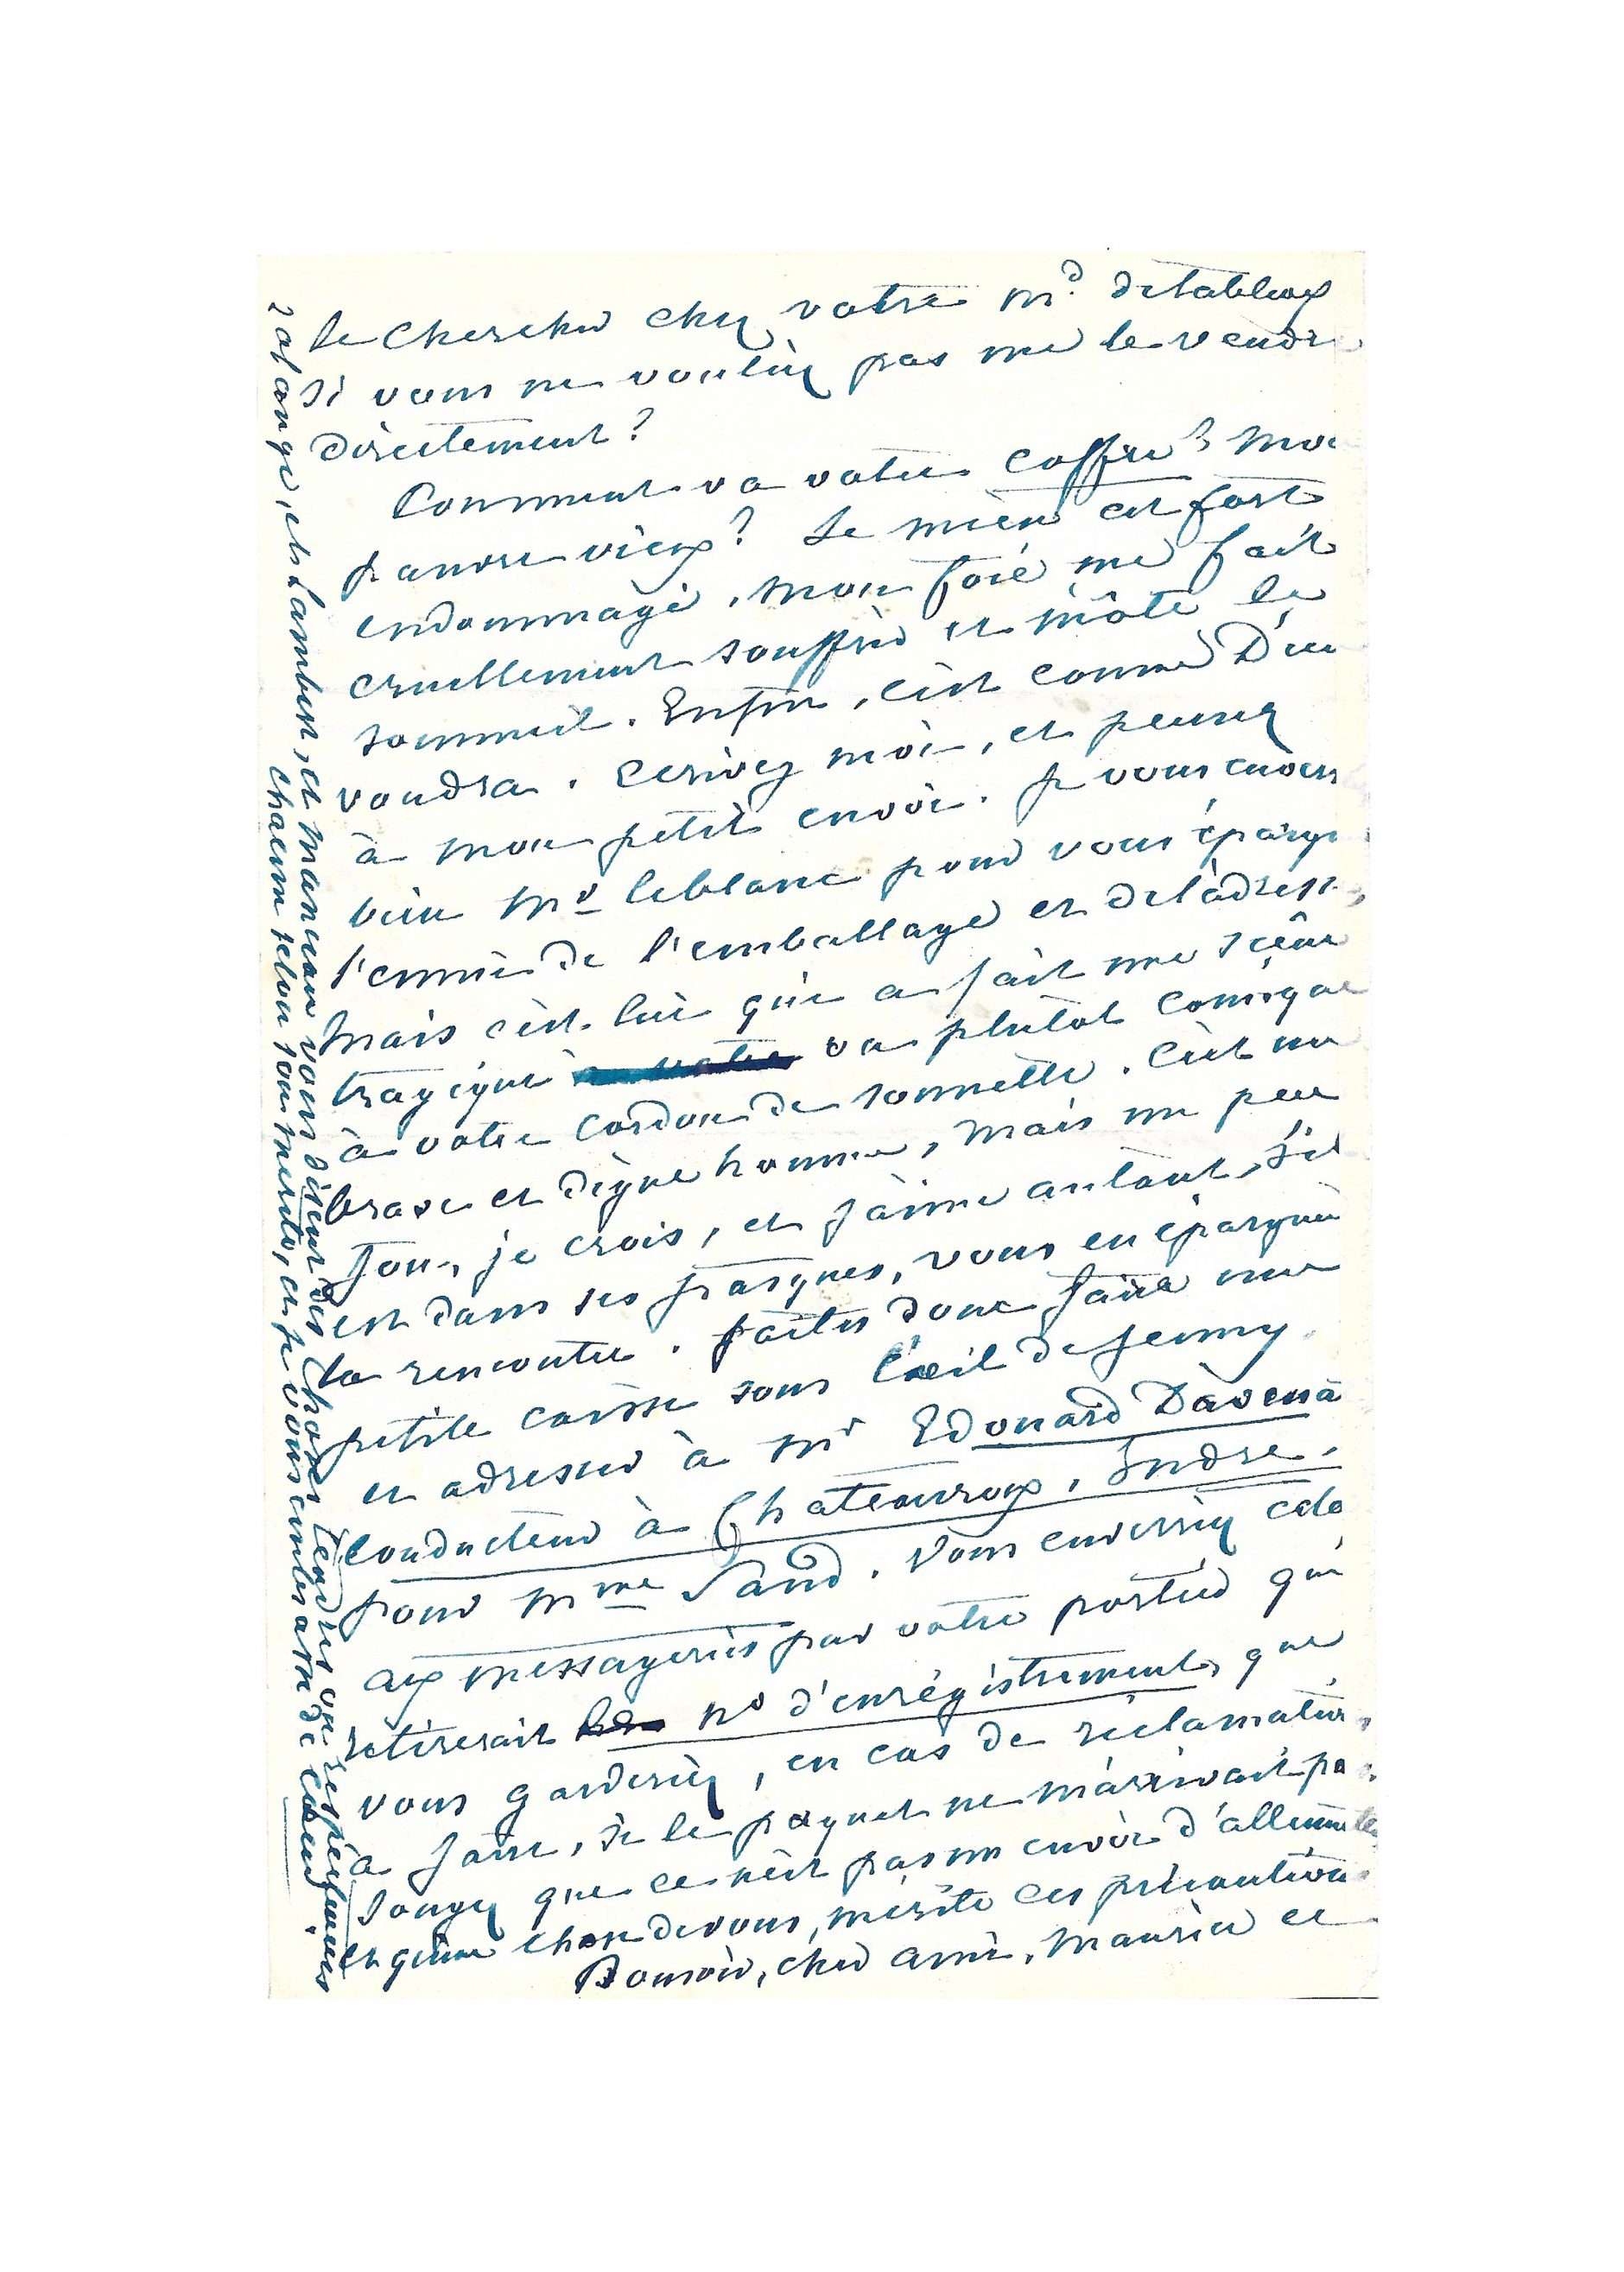 le chercher chez votre md. de tableaux
si vous ne vouliez pas me le vendre
directement?
Comment va votre coffre? mon
pauvre vieux? Le mien est fort
endommagé. Mon foie me fait
cruellement souffrir et m'ôte le
sommeil. Enfin, c'est comme Dieu
voudra. Ecrivez moi, et pensez
à mon petit envoi. Je vous enverr
bien Mr leblanc pour vous épargn
l'ennui de l'emballage et de l'adresse,
Mais c'est lui qui a fait une scène
tragique ou plutôt comique
à votre cordon de sonnette. C'est un
brave et digne homme, mais un peu
fou, je crois, et j'aime autant, s'il
est dans ses frasques, vous en épargner
la rencontre. faites donc faire une
petite caisse sous l'œil de Jenny
et adresser à Mr Edouard Davena
Conducteur à Chateauroux, Indre.
pour Mme Sand. Vous enverriez cela
aux messageries par votre portier qui
retirerait no d'enrégistrement, que
vous garderiez, en cas de réclamation
à faire, si le paquet ne m'arrivait pas.
Songez que ce n'est pas un envoi d'allumettes
et qu'une chose de vous, mérite ces précautions
Bonsoir, cher ami. Maurice et
Solange, et Lambert, et Manceau vous disent des choses tendres ou respectueuses
chacun selon son mérite, et je vous embrasse de cœur.